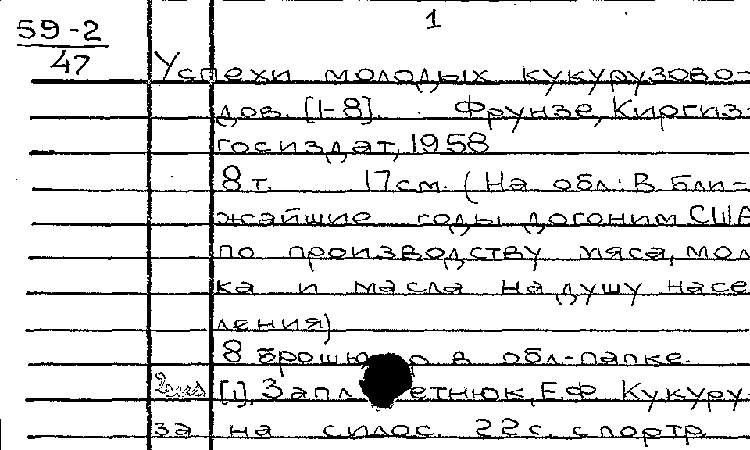 1
59-2
47
Успехи молодых кукурузово-
дов. [1-8]. Фрунзе, Киргиз-
госиздат, 1958
8 т. 17 см. (На обл.: В бли-
жайшие годы догоним США
по производству мяса, моло
ка и масла на душу насе
ления)
8 брошюр в обл-папке.
[1], Кукуру-
за на силос. 22 с. с портр